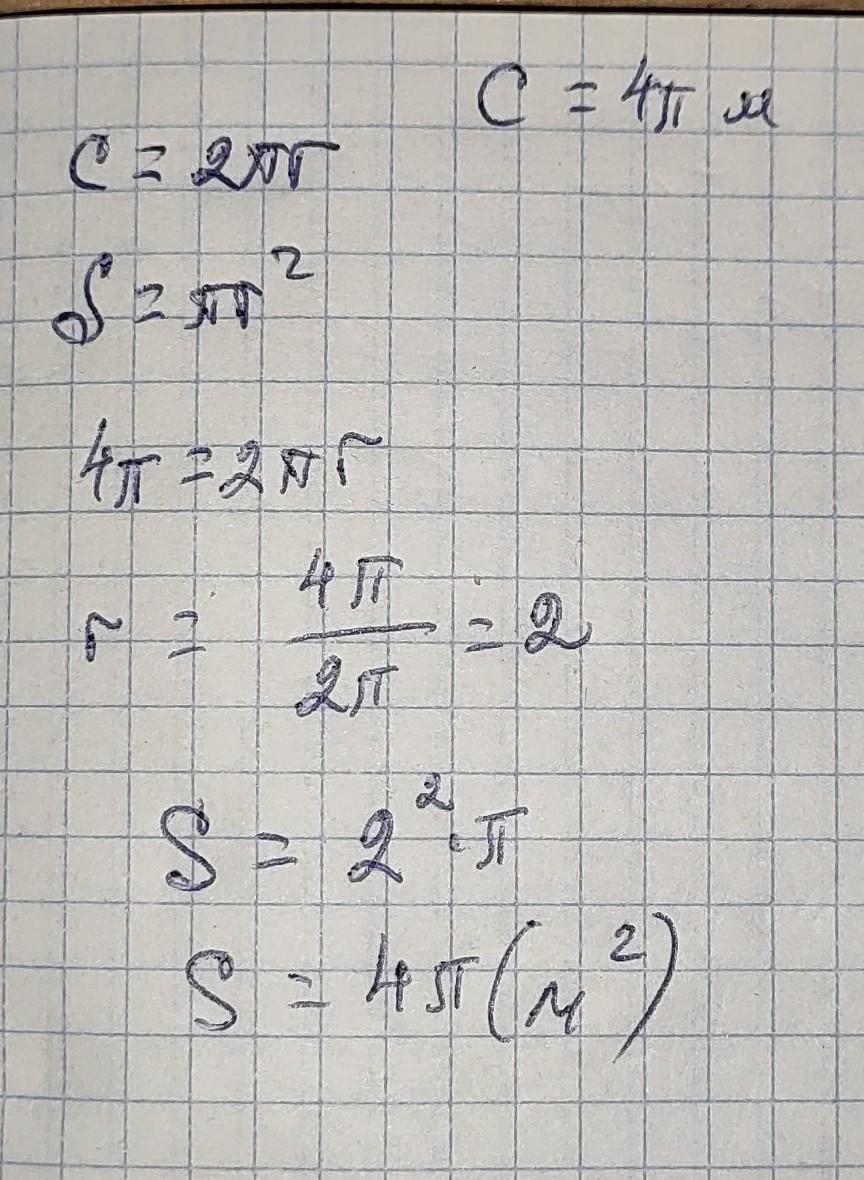 C = 4π м
C = 2πr
S = πr²
4π = 2πr
r = 4π/2π = 2
S = 2²·π
S = 4π(м²)